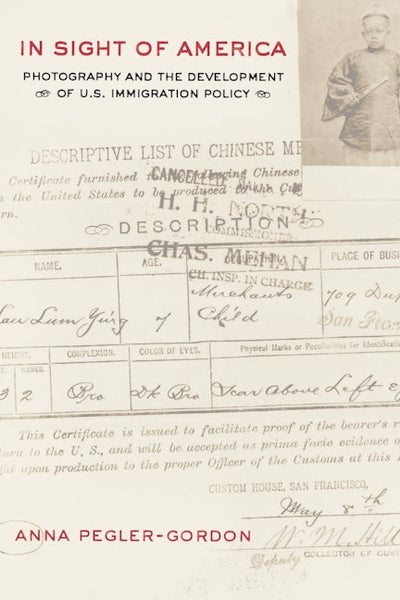 IN SIGHT OF AMERICA
PHOTOGRAPHY AND THE DEVELOPMENT
OF U.S. IMMIGRATION POLICY
DESCRIPTIVE LIST OF CHINESE ME
Certificate furnished to following Chinese
CANCELLED
the United States to be produced to the Cu
H. H. NORTH
COMMISSIONER
DESCRIPTION
CHAS. MEHAN
CH. INSP. IN CHARGE
NAME. AGE. OCCUPATION PLACE OF BUSI
Lum Ying 7 Merchants Child 709 Du
San Fran
HEIGHT. COMPLEXION. COLOR OF EYES. Physical Marks or Peculiarities for Identificatio
3 2 Bro Dk Bro Scar Above Left Ey
This Certificate is issued to facilitate proof of the bearer's r
turn to the U. S., and will be accepted as prima facie evidence o
upon production to the proper Officer of the Customs at this
CUSTOM HOUSE, SAN FRANCISCO,
May 8th
ANNA PEGLER-GORDON
W. M. Hill
Deputy COLLECTOR OF CUST